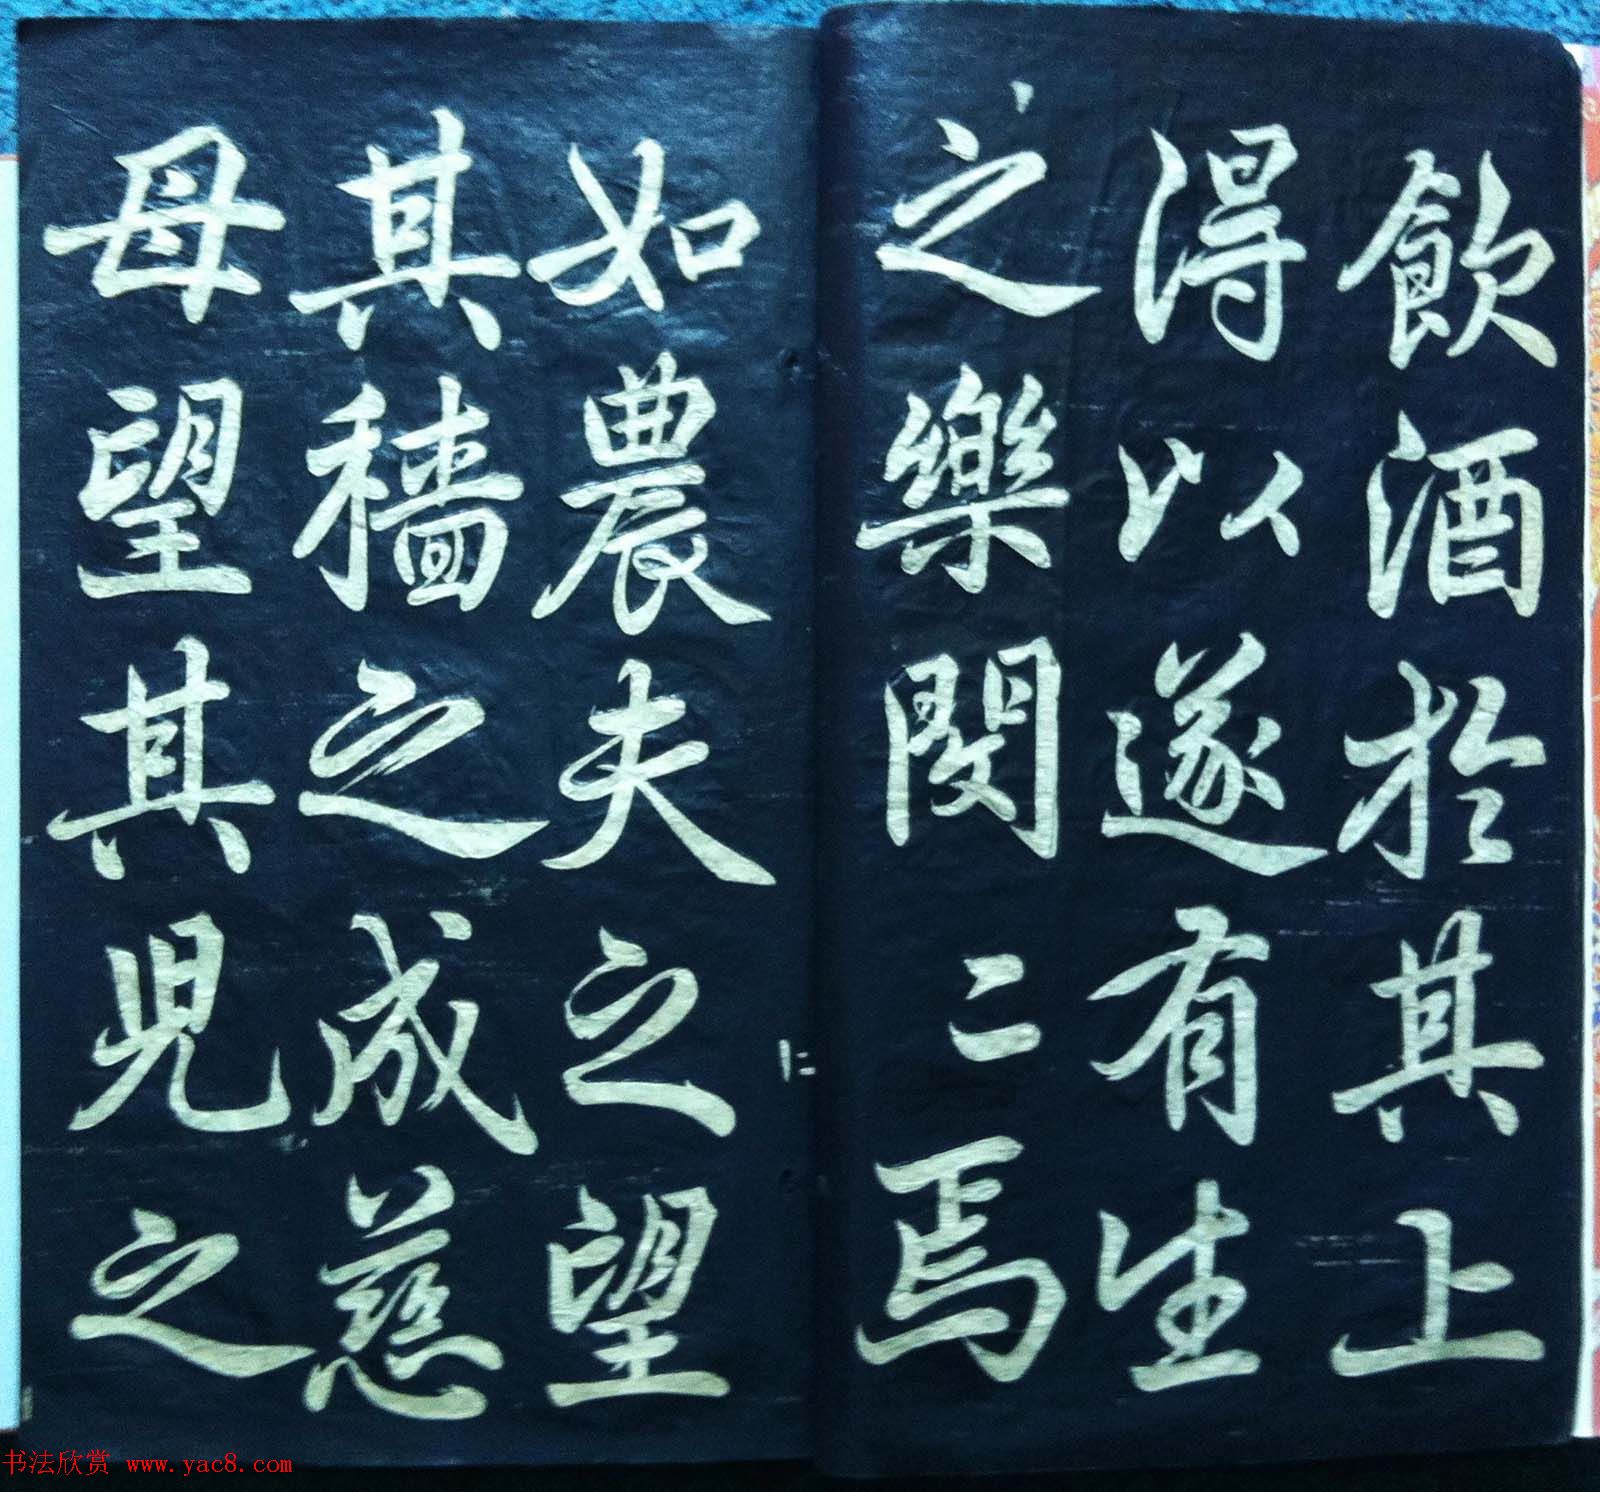 飲酒於其上
得以遂有生
之樂閔〻焉
如農夫之望
其穡之成慈
母望其兒之
书法欣赏 www.yac8.com